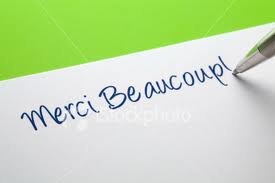 Merci Beaucoup!
iStockphoto